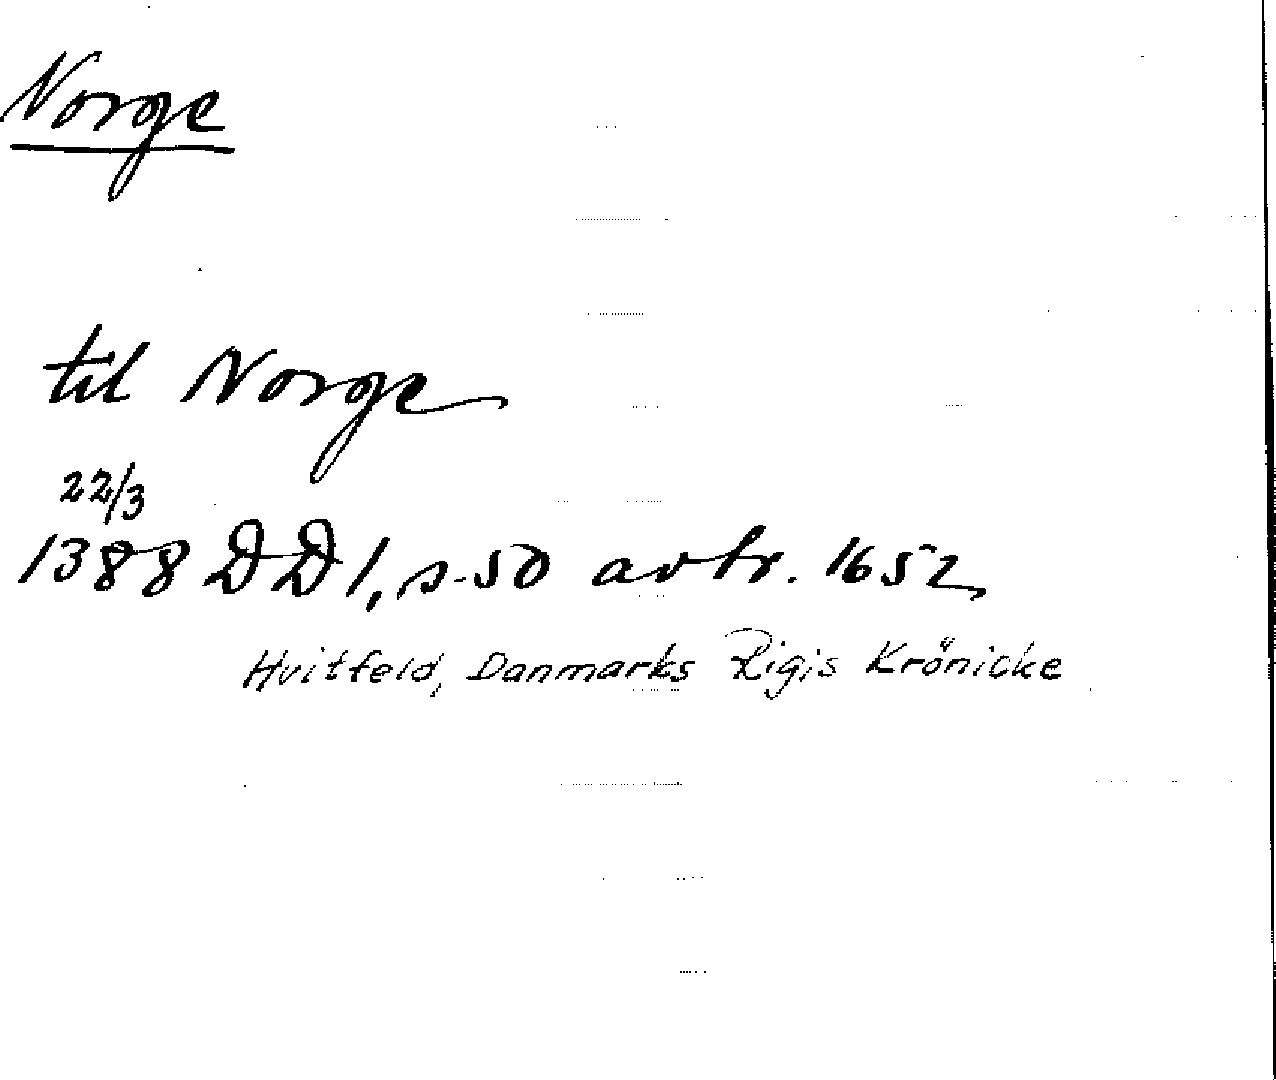 Norge
til Norge
22/3
1388 DD 1, s. 50 avtr. 1652
Hvitfeld, Danmarks Rigis Krönicke